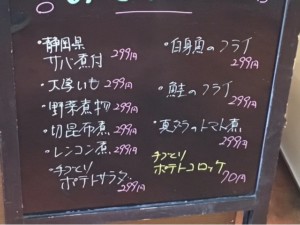 ・静岡県
サバ煮付 299円
・大学いも 299円
・野菜煮物 299円
・切昆布煮 299円
・レンコン煮 299円
・手づくり
ポテトサラダ 299円
・白身魚のフライ
299円
・鮭のフライ
299円
・真ダラのトマト煮
299円
手づくり
ポテトコロッケ
70円